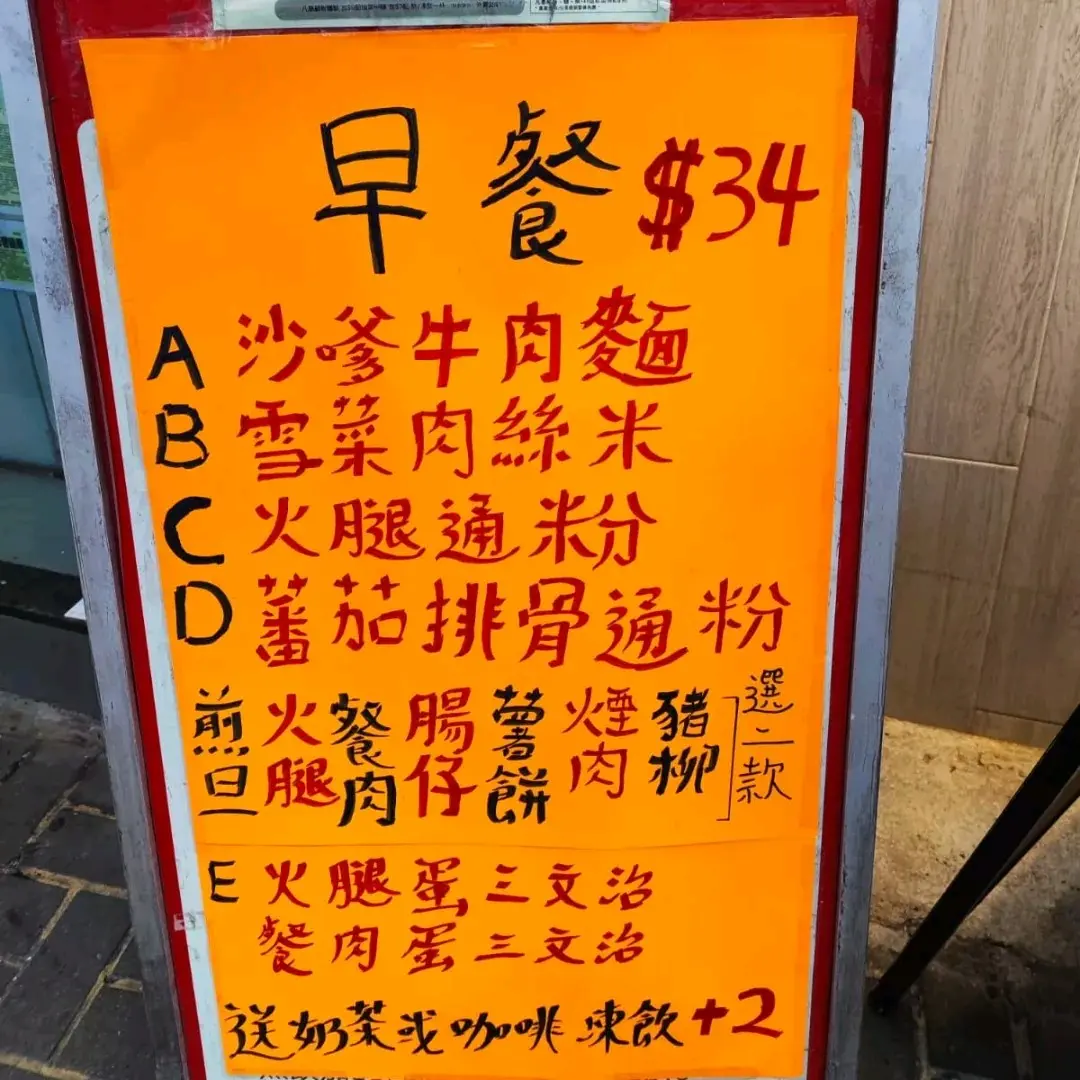 早餐 $34
A 沙嗲牛肉麵
B 雪菜肉絲米
C 火腿通粉
D 蕃茄排骨通粉
煎旦 火腿 餐肉 腸仔 薯餅 煙肉 豬柳 選二款
E 火腿蛋三文治
餐肉蛋三文治
送奶茶或咖啡 凍飲+2